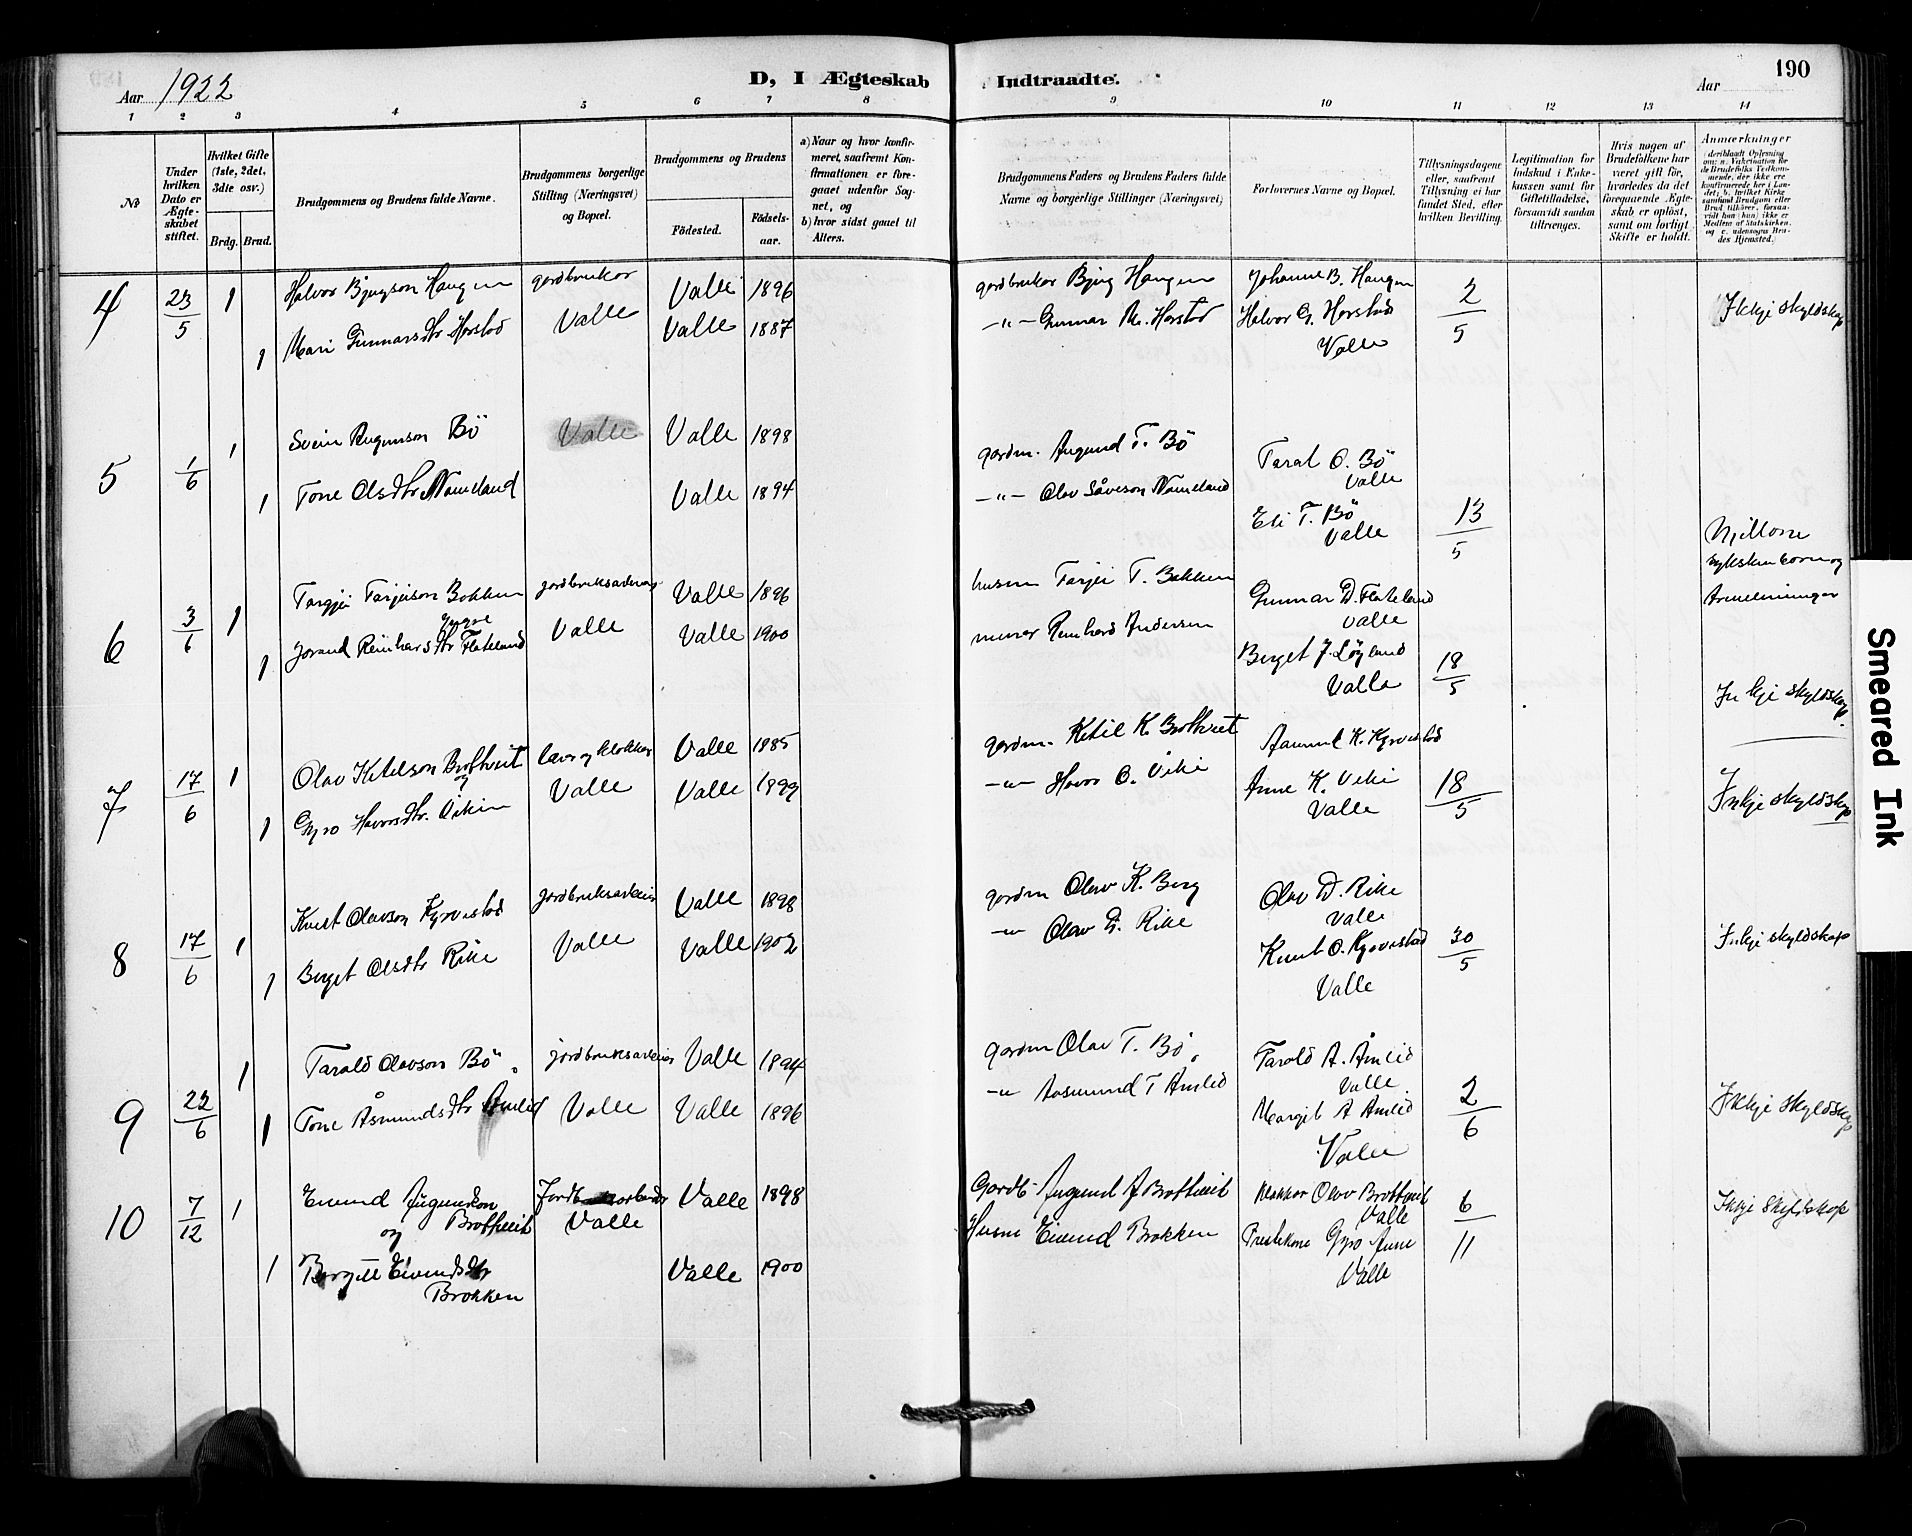 Aar 1922
D, I Ægteskab Indtraadte.
Aar
190
1 2 3 4 5 6 7 8 9 10 11 12 13 14
No
Under hvilken Dato er Ægteskabet stiftet.
Hvilket Gifte (1ste, 2det, 3die osv.)
Brdg. Brud.
Brudgommens og Brudens fulde Navne.
Brudgommens borgerlige Stilling (Næringsvei) og Bopæl.
Brudgommens og Brudens
Fødested.
Fødselsaar.
a) Naar og hvor konfirmeret, saafremt Konfirmationen er foregaaet udenfor Sognet, og
b) hvor sidst gaaet til Alters.
Brudgommens Faders og Brudens Faders fulde Navne og borgerlige Stillinger (Næringsvei)
Forlovernes Navne og Bopæl.
Tillysningsdagene eller, saafremt Tillysning ei har fundet Sted, efter hvilken Bevilling.
Legitimation for Indskud i Enkekassen samt for Giftetilladelse, forsaavidt saadan tiltrænges.
Hvis nogen af Brudefolkene har været gift før, hvorledes da det foregaaende Ægteskab er opløst, samt om lovligt Skifte er holdt.
Anmærkninger
4 23/5 1 Halvor Bjugson Haugen gardbrukar Valle 1896 gardbrukar Bjug Haugen Johanne B. Haugen 2/5 Ikkje skyldskap
1 Mari Gunnarsdtr Harstad Valle Valle 1887 -"- Gunnar M. Harstad Halvor G. Harstad
Valle
5 1/6 1 Svein Augunson Bö Valle Valle 1898 gardm. Augund T. Bö Taral O. Bö
Valle
1 Tone Olsdtr Nomeland Valle 1894 -"- Olav Såveson Nomeland
T. Bö 13/5
Valle
6 3/6 1 Targjei Tarjeison Bakken jordbruksarbeidar Valle 1896 husm Tarjei T. Bakken Gunnar D. Flateland
Valle
1 Jorand Reinhardsdtr Flateland Valle Valle 1900 murar Reinhard Andersen
Berget J. Løyland 18/5
Valle
Inkje skyldskap.
7 17/6 1 Olav Ketelson Brottveit Valle 1885 gardm. Ketil K. Brottveit Aamund K. Kyrvestad
og
1 Gyro Havorsdtr. Viki Valle Valle 1899 -"- Havor O. Viki Anne K. Viki 18/5 Inkje skyldskap
Valle
8 17/6 1 Knut Olavson Kyrvestad jordbruksarbeidar Valle 1898 gardm Olav K. Berg Olav D. Rike
Valle
1 Berget Olsdtr Rike Valle Valle 1902 -"- Olav D. Rike Knut O. Kyrvestad 30/5 Inkje skyldskap
Valle
9 23/6 1 Tarald Olavson Bö jordbruksarbeidar Valle 1894 gardm Olav T. Bö Tarald A. Åmlid
Valle
1 Tone Åsmundsdtr Åmlid Valle Valle 1896 -"- Aasmund T Åmlid Margit A Åmlid 2/6 Ikkje skyldskap
Valle
10 7/12 1 Eivind Augundson Valle 1898 Gardb- Augund J Brottveit Klokkar Olav Brottveit 6/11 Ikkje skyldskap
og Brottveit Valle Valle
1 Eivindsdtr Valle 1900 Husm Eivind Brokken Gyro
Brokken Valle
Smeared Ink